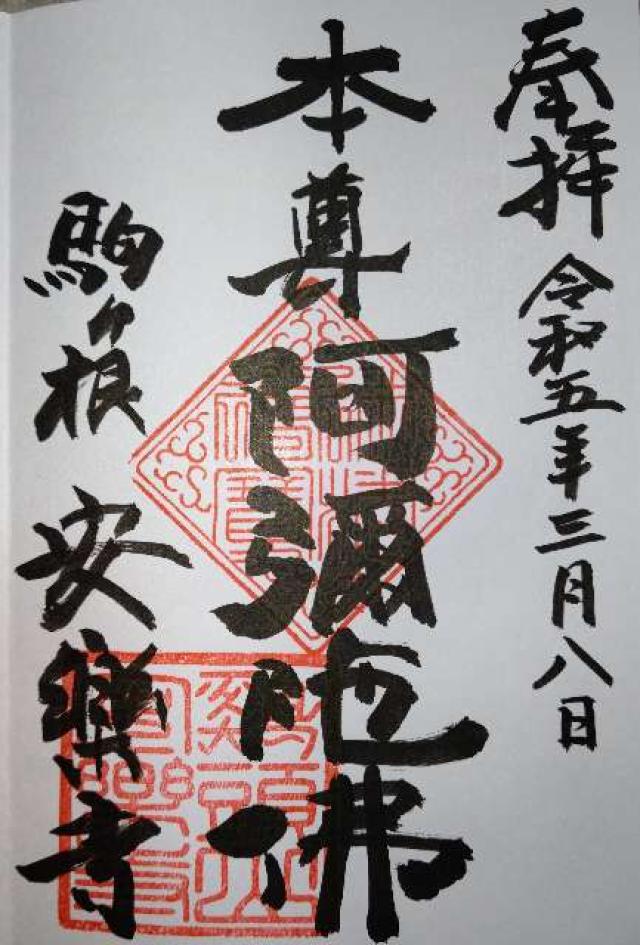 奉拝 令和五年三月八日
本尊 阿彌陀佛
駒ヶ根 安樂寺